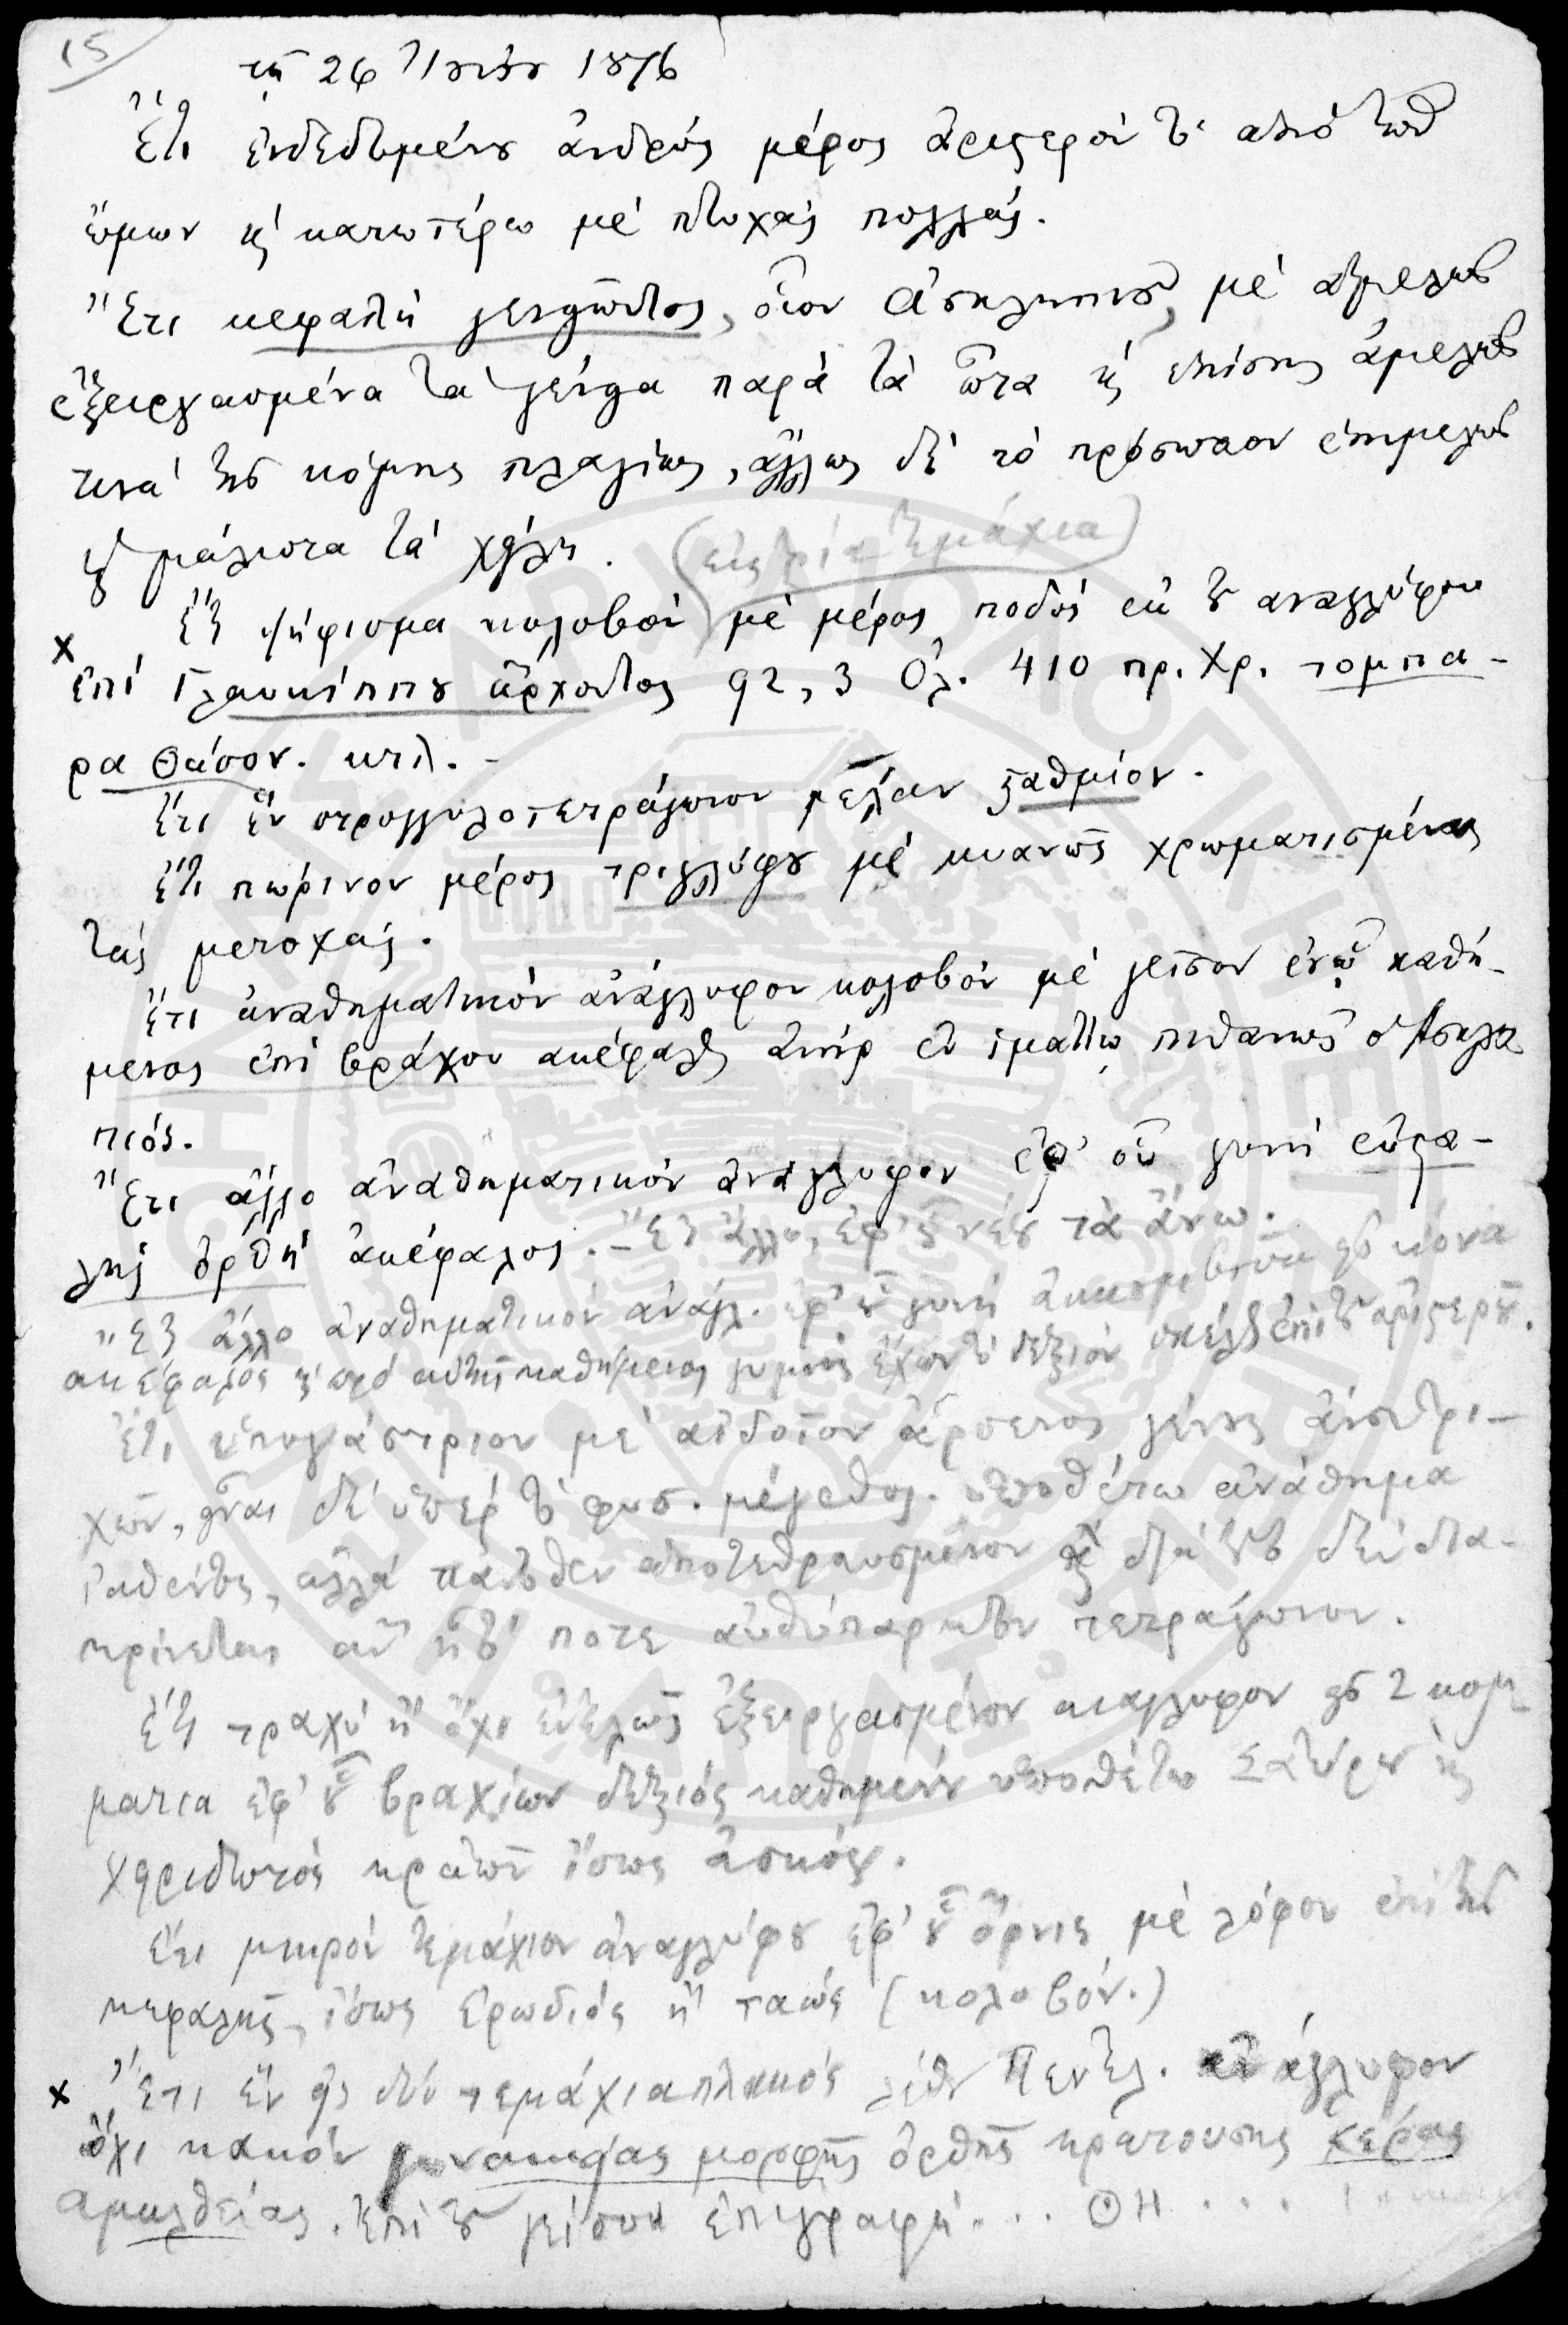 15
τῇ 26 Ἰουνίου 1876
Ἔτι ἐνδεδυμένου ἀνδρὸς μέρος ἀριστερὸν τὸ ἀπὸ τῶν
ὤμων καὶ κατωτέρω μὲ πτυχὰς πολλάς.
Ἔτι κεφαλὴ γενειῶντος, οἷον Ἀσκληπιοῦ, μὲ ἀμελῶς
ἐξειργασμένα τὰ γένεια παρὰ τὰ ὦτα καὶ ἐπίσης ἀμελῶς
τινὰ τῆς κόμης πλαγίως, ἄλλως δὲ τὸ πρόσωπον ἐπιμελῶς
καὶ μάλιστα τὰ χείλη. (εἰς τρία τεμάχια)
Ἔτι ψήφισμα κολοβὸν μὲ μέρος ποδὸς ἐκ τοῦ αναγλύφου
x ἐπὶ Γλαυκίππου ἄρχοντος 92,3 Ὀλ. 410 πρ. Χρ. τομ πα-
ρα Θάσον. κτλ. -
Ἔτι ἓν στρογγυλοτετράγωνον μέλαν σταθμίον.
Ἔτι πώρινον μέρος τριγλύφου μὲ κυανῶς χρωματισμένας
τὰς μετοχάς.
Ἔτι ἀναθηματικὸν ἀνάγλυφον κολοβὸν μὲ γεῖσον ἐν ᾧ καθή-
μενος ἐπὶ βράχου ακέφαλος ἀνὴρ ἐν ἱματίῳ πιθανῶς ὁ Ἀσκλη
πιός.
Ἔτι ἄλλο ἀναθηματικὸν ἀνάγλυφον ἐφ' οὗ γυνὴ εὐστα-
λὴς ὀρθὴ ἀκέφαλος. - Ἔτι ἄλλο, ἐφ' οὗ νέου τὰ ἄνω.
Ἔτι ἄλλο ἀναθηματικὸν ἀνάγλ. ἐφ' οὗ γυνὴ εἰς κίονα
ακέφαλος καὶ πρὸ αὐτῆς καθήμενος γυμνὸς ἔχων τὸ δεξιὸν σκέλος ἐπὶ τοῦ ἀριστεροῦ.
Ἔτι ὑπογάστριον μὲ αἰδοῖον ἄρσενος γένους ἄνευ τρι-
χῶν, εἶναι δὲ ὑπὲρ τὸ φυσ. μέγεθος. ὑποθέτω ἀνάθημα
ἰαθέντος, ἀλλὰ πάντοθεν ἀποτεθραυσμένον καὶ διὰ τοῦτο δὲν δια-
κρίνεται ἂν ἦτό ποτε αὐθύπαρκτον τετράγωνον.
Ἔτι τραχὺ καὶ ὄχι ἐντελῶς ἐξειργασμένον αναγλυφον εἰς 2 κομ-
ματια ἐφ' οὗ βραχίων δεξιὸς καθημένου ὑποθέτω Σατύρου καὶ
χειριδωτὸς κρατῶν ἴσως ἀσκόν.
Ἔτι μικρὸν τεμάχιον ἀναγλύφου ἐφ' οὗ ὄρνις μὲ λόφον ἐπὶ τῆς
κεφαλῆς, ἴσως ἐρωδιὸς ἢ ταώς (κολοβόν.)
x Ἔτι ἓν εἰς δύο τεμάχια πλακὸς λίθου Πεντελ. ἀνάγλυφον
ὄχι κακὸν γυναικείας μορφῆς ὀρθῆς κρατούσης κέρας
αμαλθείας. Ἐπὶ τοῦ γείσου ἐπιγραφή... ΘΗ . . .